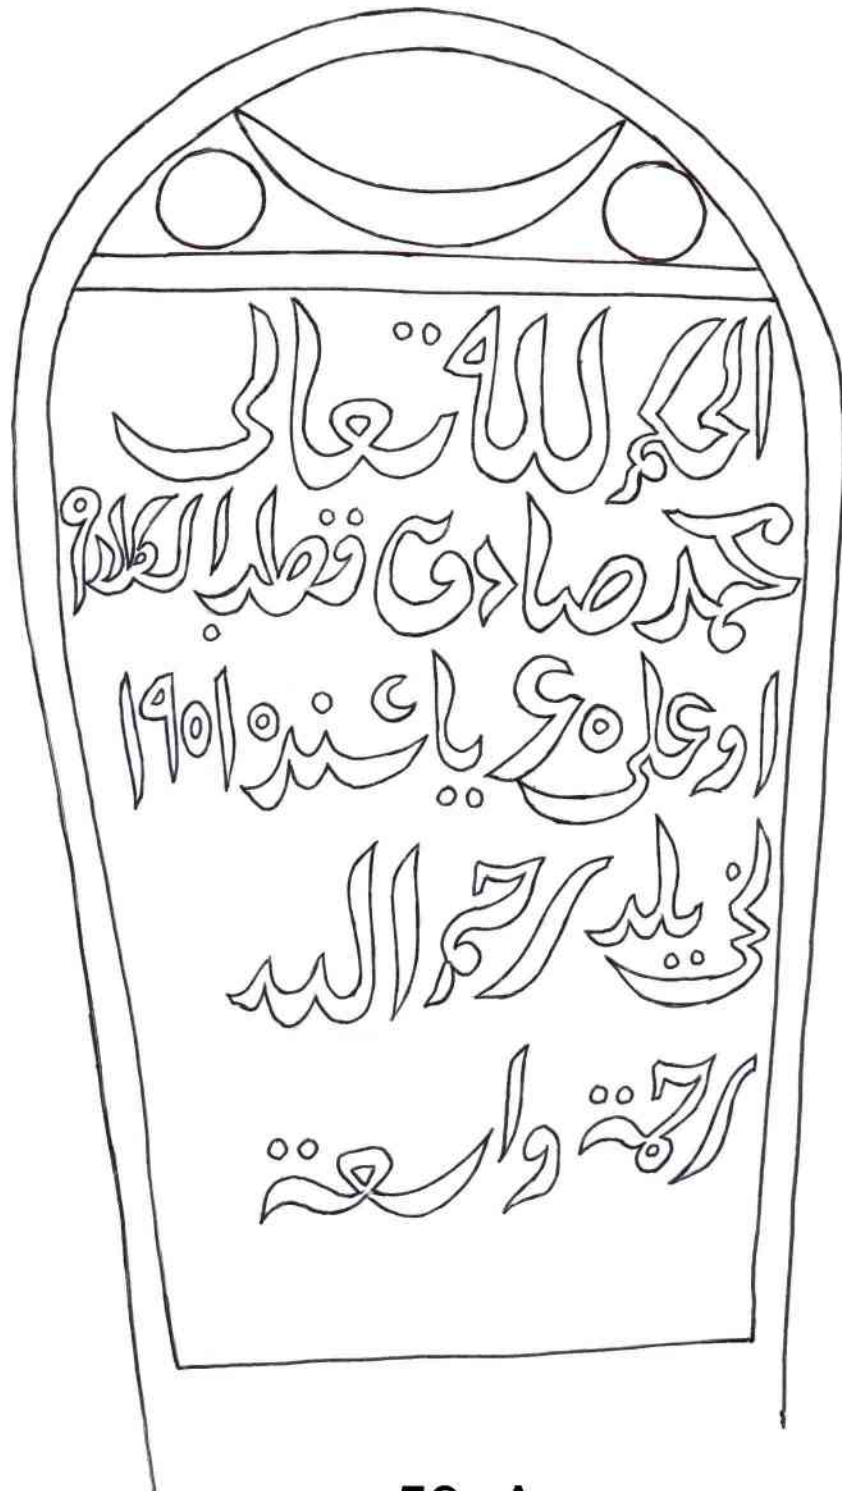 الحكم لله تعالى
محمد صادق قطب
اوعلى ياشنده ١٩٥١
نجى يلد رحم الله
رحمة واسعة